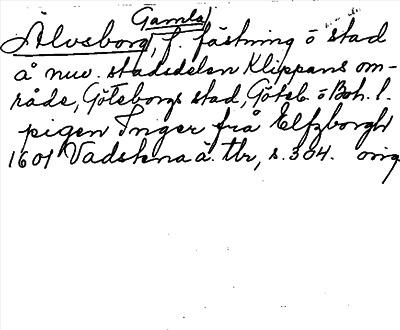 Gamla
Älvsborg, f. fästning o stad
å nuv. stadsdelen Klippans om-
råde, Göteborgs stad, Göteb. o Boh. l.
pigen Inger frå Elfzborgh
1601 Vadstena ä. tb, s. 304. orig